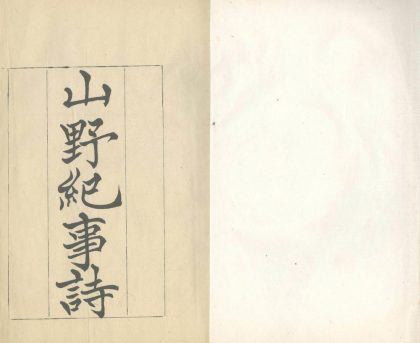 山野紀事詩